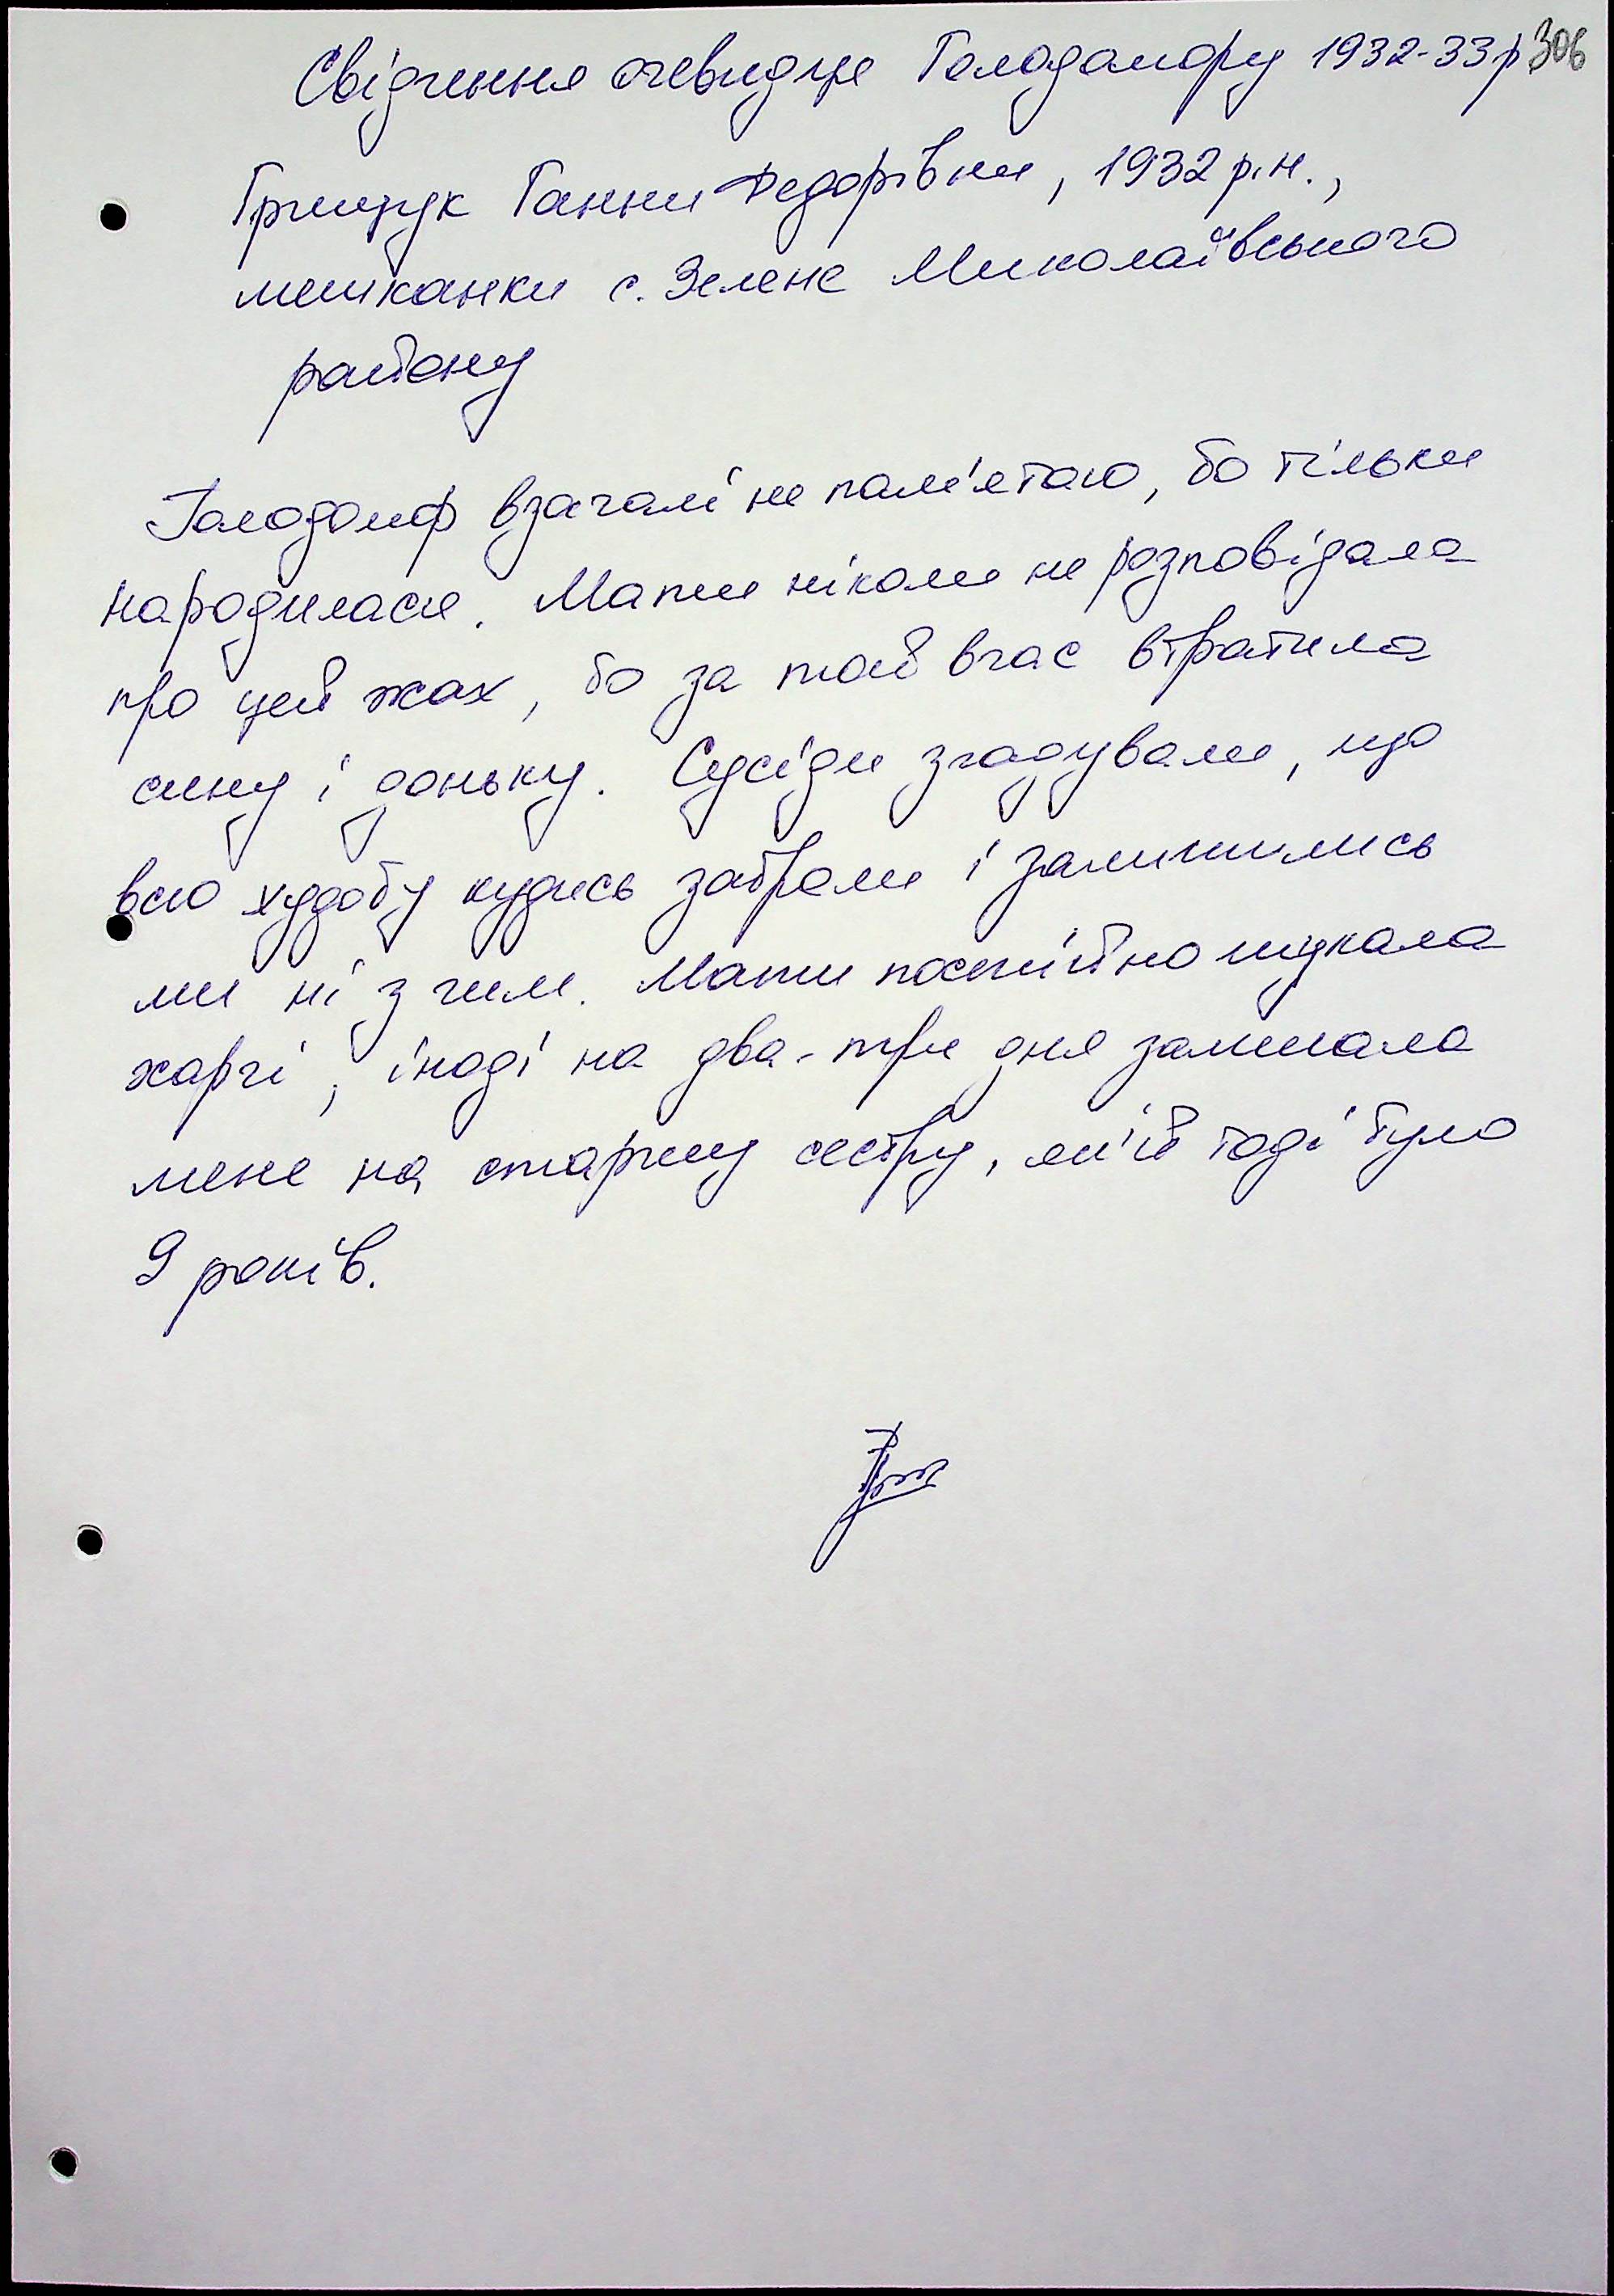 Свідчення очевидця Голодомору 1932-33р 306
Грищук Ганни Федорівни, 1932 р.н.,
мешканки с. Зелене Миколаївського
району
Голодомор взагалі не пам'ятаю, бо тільки
народилася. Мати ніколи не розповідала
про цей жах, бо за той вчас втратила
сину і доньку. Сусіди згадували, що
всю худобу кудись забрали і залишились
ми ні з чим. Мати постійно шукала
харчі, іноді на два-три дня залишала
мене на старшу сестру, якій тоді було
9 років.